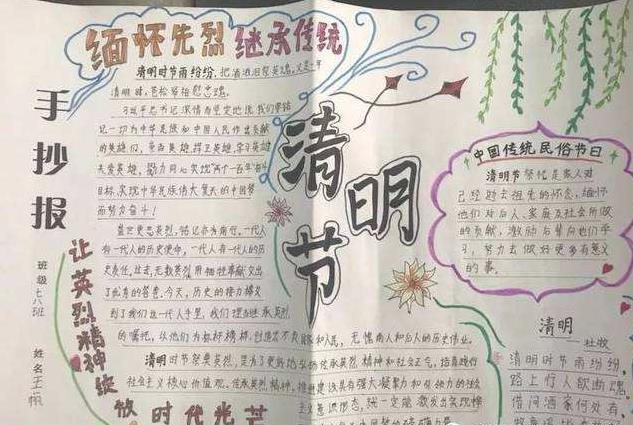 缅怀先烈 继承传统
手抄报
班级 七八班
姓名 王
清明节
清明时节雨纷纷，把酒洒泪祭英魂，又是一年
清明时，苍松翠柏慰忠魂。
习近平总书记深情而坚定地说：我们要铭
记一切为中华民族和中国人民作出贡献
的英雄们，崇尚英雄，捍卫英雄，学习英雄
关爱英雄，戮力同心实现“两个一百年”奋斗
目标，实现中华民族伟大复兴的中国梦
而努力奋斗！
盛世更思英烈，铭记亦为前行。一代人
有一代人的历史使命，一代人有一代人的历
史责任。过去，无数英烈用牺牲奉献交出
了优秀的答卷。今天，历史的接力棒交
到了我们这一代人手里，我们
的嘱托，以他们为标杆榜样，
和人民，无愧前人和后人的历史伟业。
清明时节祭奠英烈，是为了更好地
传承英烈精神和社会正气，培育践行
社会主义核心价值观。传承英烈精神，
建设具有强大凝聚力和引领力的社会
主义意识形态，就一定能激发出实现
让英烈精神绽放时代光芒
中国传统民俗节日
清明节祭祀是家人对
己经逝去祖先的怀念，缅怀
他们对后人、家庭及社会所做
的贡献，激励与晋向他们学
习，努力去做好更多有意义
的事。
清明
杜牧
清明时节雨纷纷，
路上行人欲断魂。
借问酒家何处有